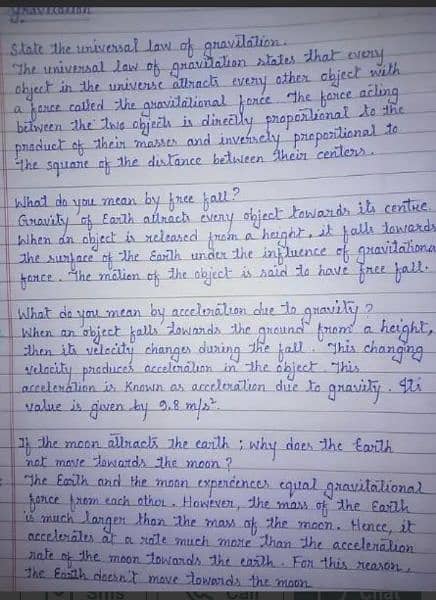 Gravitation
State the universal law of gravitation.
The universal law of gravitation states that every
object in the universe attracts every other object with
a force called the gravitational force. The force acting
between the two objects is directly proportional to the
product of their masses and inversely proportional to
the square of the distance between their centers.
What do you mean by free fall?
Gravity of Earth attracts every object towards its centre.
When an object is released from a height, it falls towards
the surface of the Earth under the influence of gravitationa
force. The motion of the object is said to have free fall.
What do you mean by acceleration due to gravity?
When an object falls towards the ground from a height,
then its velocity changes during the fall. This changing
velocity produces acceleration in the object. This
acceleration is known as acceleration due to gravity. Its
value is given by 9.8 m/s².
If the moon attracts the earth; why does the Earth
not move towards the moon?
The Earth and the moon experences equal gravitational
force from each other. However, the mass of the Earth
is much larger than the mass of the moon. Hence, it
accelerates at a rate much more than the acceleration
rate of the moon towards the earth. For this reason,
the Earth doesn't move towards the moon
SMS Call Chat